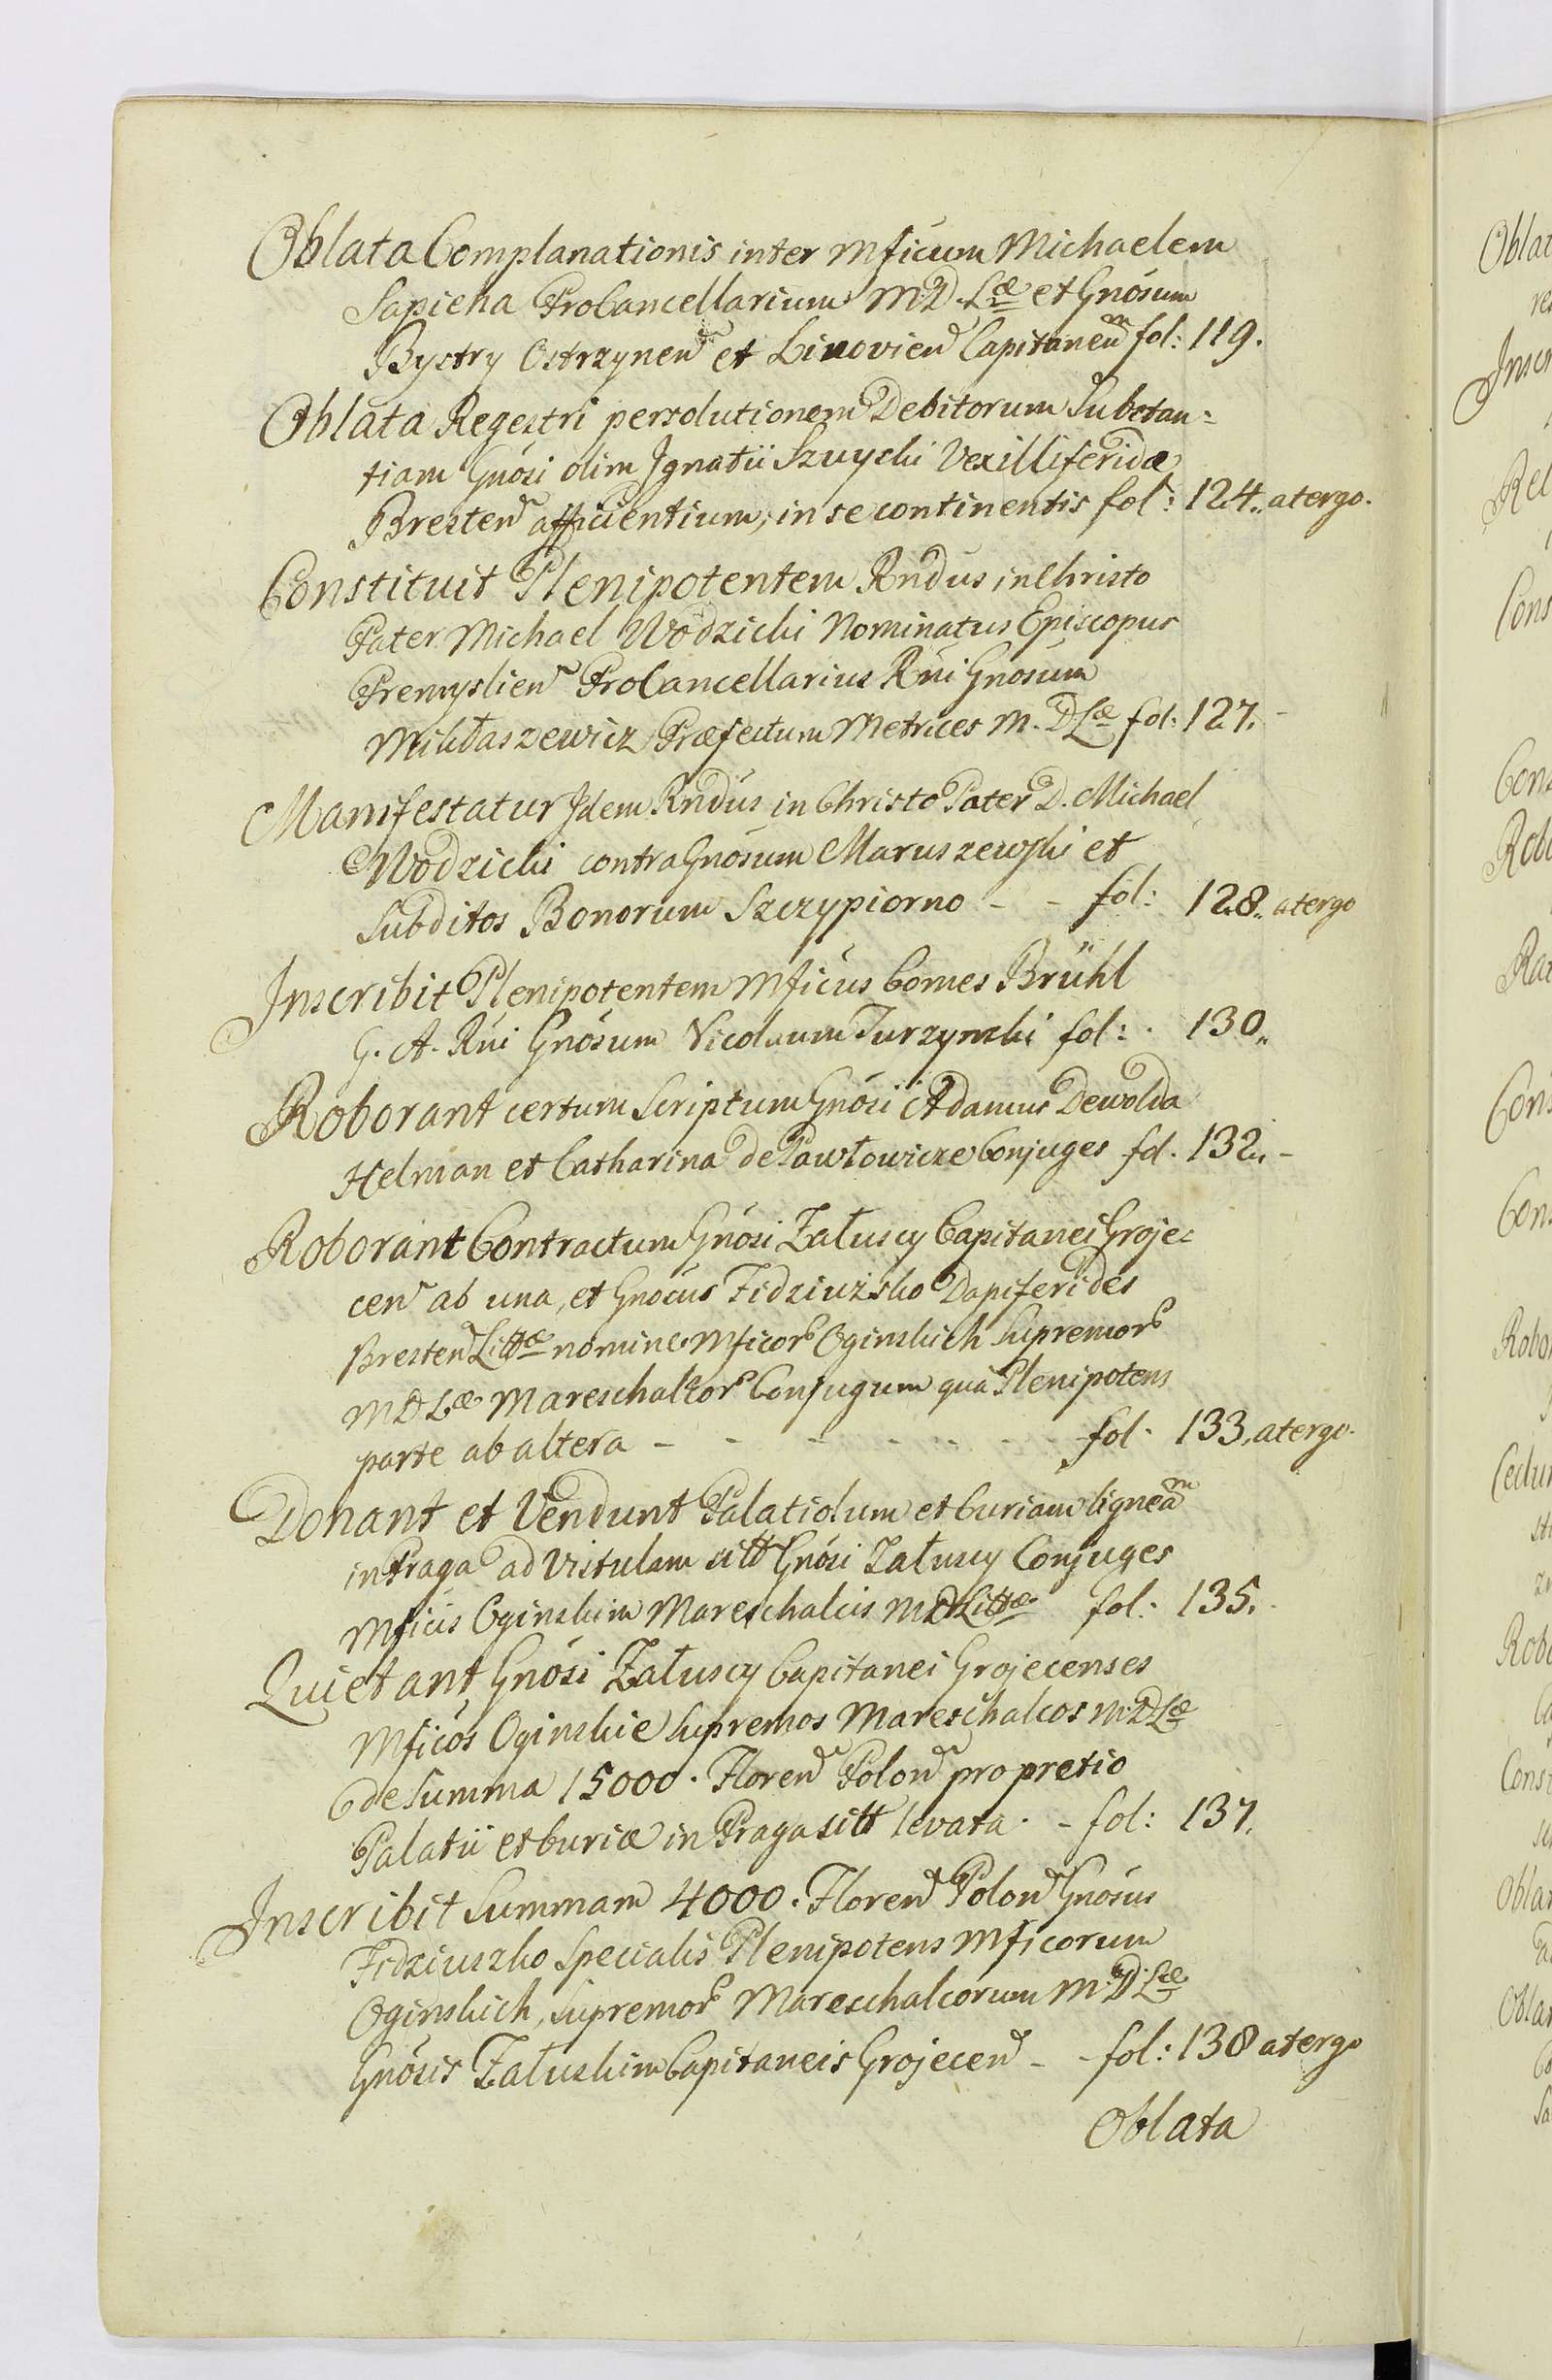 Oblata Complanationis inter Mficum Michaelem
Sapieha ProCancellarium M.D.Læ et Gnosum
Bystry Ostrzynen et Linovien Capitaneum fol: 119.
Oblata Regestri persolutionem Debitorum Substan=
tiam Gnosi olim Ignatii Szuyski Vexilliferidæ
Bresten afficientium, in se continentis fol: 124. a tergo.
Constituit Plenipotentem Rndus in Christo
Pater Michael Wodzicki Nominatus Episcopus
Premyslien ProCancellarius Rni Gnosum
Mikłaszewicz Præfectum Metrices M. D Læ fol: 127.
Manifestatur Idem Rndus in Christo Pater D. Michael
Wodzicki contra Gnosum Maruszewski et
Subditos Bonorum Szczypiorno - - fol: 128. a tergo
Inscribit Plenipotentem Mficus Comes Brühl
G. A. Rni Gnosum Nicolaum Turzynski fol: 130.
Roborant certum Scriptum Gnosi Adamus Dewolda
Helman et Catharina de Pawłowicze Conjuges fol. 132. -
Roborant Contractum Gnosi Załuscy Capitanei Groje=
cen ab una, et Gnocus Fidziuszko Dapiferides
Bresten Littæ nomine Mficor Oginskich Supremor
M D Læ Mareschalcor Conjugum qua Plenipotens
parte ab altera - - - - - - fol. 133. a tergo.
Donant et Vendunt Palatiolum et Curiam ligneam
in Praga ad Vistulam sitt Gnosi Załuscy Conjuges
Mficis Oginskim Mareschalcis M D Littæ fol: 135.
Quietant Gnosi Załuscy Capitanei Grojecenses
Mficos Oginskie Supremos Mareschalcos M D Læ
de Summa 15000. Floren Polon pro pretio
Palatii et Curiæ in Praga sitt levata. - fol: 137.
Inscribit Summam 4000. Floren Polon Gnosus
Fidziuszko Specialis Plenipotens Mficorum
Oginskich, Supremor Mareschalcorum M.D.Læ
Gnosis Załuskim Capitaneis Grojecen - - fol: 138 a tergo
Oblata